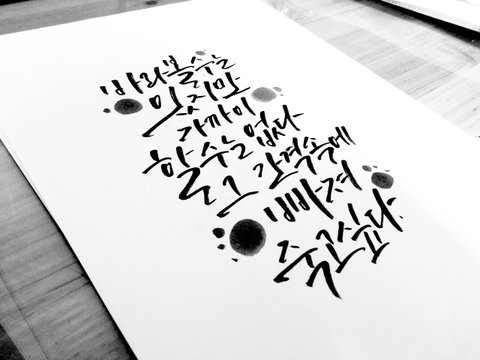 바라볼수는
있지만
가까이
할수는없다
그간격속에
빠져
죽고싶다.